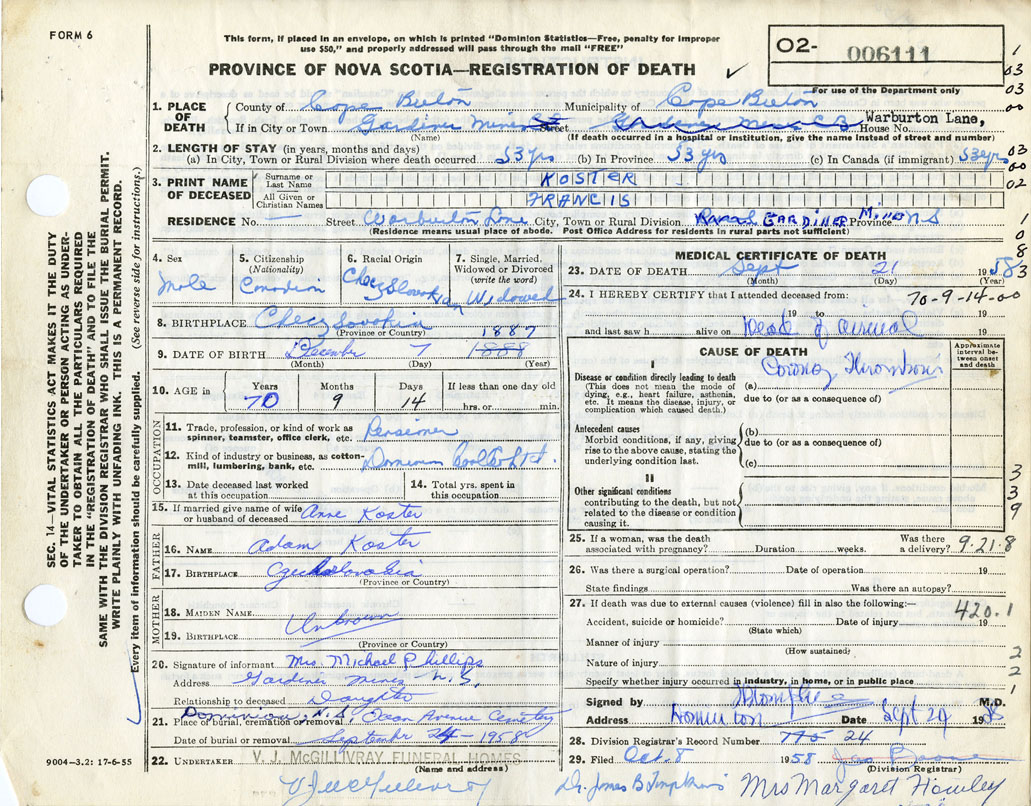 FORM 6
This form, if placed in an envelope, on which is printed "Dominion Statistics—Free, penalty for improper
use $50," and properly addressed will pass through the mail "FREE"
PROVINCE OF NOVA SCOTIA—REGISTRATION OF DEATH
O2- 006111
For use of the Department only
1. PLACE OF DEATH County of Cape Breton Municipality of Cape Breton
If in City or Town Gardiner Mines Street Warburton Lane, House No.
(Name) (If death occurred in a hospital or institution, give the name instead of street and number)
2. LENGTH OF STAY (in years, months and days)
(a) In City, Town or Rural Division where death occurred 53 yrs (b) In Province 53 yrs (c) In Canada (if immigrant) 53 yrs
3. PRINT NAME OF DECEASED Surname or Last Name KOSTER
All Given or Christian Names FRANCIS
RESIDENCE No. — Street Warburton Lane City, Town or Rural Division Rural GARDINER MINES Province N S
(Residence means usual place of abode. Post Office Address for residents in rural parts not sufficient)
4. Sex Male
5. Citizenship (Nationality) Canadian
6. Racial Origin Checzslovakian
7. Single, Married, Widowed or Divorced (write the word) Widowed
8. BIRTHPLACE Checzlovakia
(Province or Country)
9. DATE OF BIRTH December 7 1888 1887
(Month) (Day) (Year)
10. AGE in Years 70 Months 9 Days 14 If less than one day old hrs. or min.
OCCUPATION
11. Trade, profession, or kind of work as spinner, teamster, office clerk, etc. Pensioner
12. Kind of industry or business, as cotton-mill, lumbering, bank, etc. Dominion Coal Co Ltd.
13. Date deceased last worked at this occupation
14. Total yrs. spent in this occupation
15. If married give name of wife or husband of deceased Anne Koster
FATHER
16. NAME Adam Koster
17. BIRTHPLACE Czechoslovakia
(Province or Country)
MOTHER
18. MAIDEN NAME Unknown
19. BIRTHPLACE
(Province or Country)
20. Signature of informant Mrs. Michael Phillips
Address Gardiner Mines N.S.
Relationship to deceased Daughter
21. Place of burial, cremation or removal Dominion, N.S, Ocean Avenue Cemetery
Date of burial or removal September 24 - 1958
22. UNDERTAKER V. J. McGILLIVRAY FUNERAL HOMES
(Name and address)
9004—3.2: 17-6-55
MEDICAL CERTIFICATE OF DEATH
23. DATE OF DEATH Sept 21 1958
(Month) (Day) (Year)
24. I HEREBY CERTIFY that I attended deceased from: 70-9-14-00
19 to 19
and last saw h alive on Dead of arrival 19
CAUSE OF DEATH
Approximate interval between onset and death
I
Disease or condition directly leading to death
(This does not mean the mode of dying, e.g., heart failure, asthenia, etc. It means the disease, injury, or complication which caused death.)
(a) Coronary Thrombosis
due to (or as a consequence of)
Antecedent causes
Morbid conditions, if any, giving rise to the above cause, stating the underlying condition last.
(b)
due to (or as a consequence of)
(c)
II
Other significant conditions
contributing to the death, but not related to the disease or condition causing it.
25. If a woman, was the death associated with pregnancy? Duration weeks. Was there a delivery? 9.21.8
26. Was there a surgical operation? Date of operation 19
State findings Was there an autopsy?
27. If death was due to external causes (violence) fill in also the following:— 420.1
Accident, suicide or homicide? Date of injury 19
(State which)
Manner of injury
(How sustained)
Nature of injury
Specify whether injury occurred in industry, in home, or in public place
Signed by M.D.
Address Dominion Date Sept 29 1958
28. Division Registrar's Record Number 24
29. Filed Oct. 8 1958
(Division Registrar)
Dr. James B Tompkins
Mrs Margaret Hawley
SEC. 14—VITAL STATISTICS ACT MAKES IT THE DUTY
OF THE UNDERTAKER OR PERSON ACTING AS UNDER-
TAKER TO OBTAIN ALL THE PARTICULARS REQUIRED
IN THE "REGISTRATION OF DEATH" AND TO FILE THE
SAME WITH THE DIVISION REGISTRAR WHO SHALL ISSUE THE BURIAL PERMIT.
WRITE PLAINLY WITH UNFADING INK. THIS IS A PERMANENT RECORD.
Every item of information should be carefully supplied. (See reverse side for instructions.)
1
03
03
00
03
00
02
0
8
3
3
3
9
2
2
1